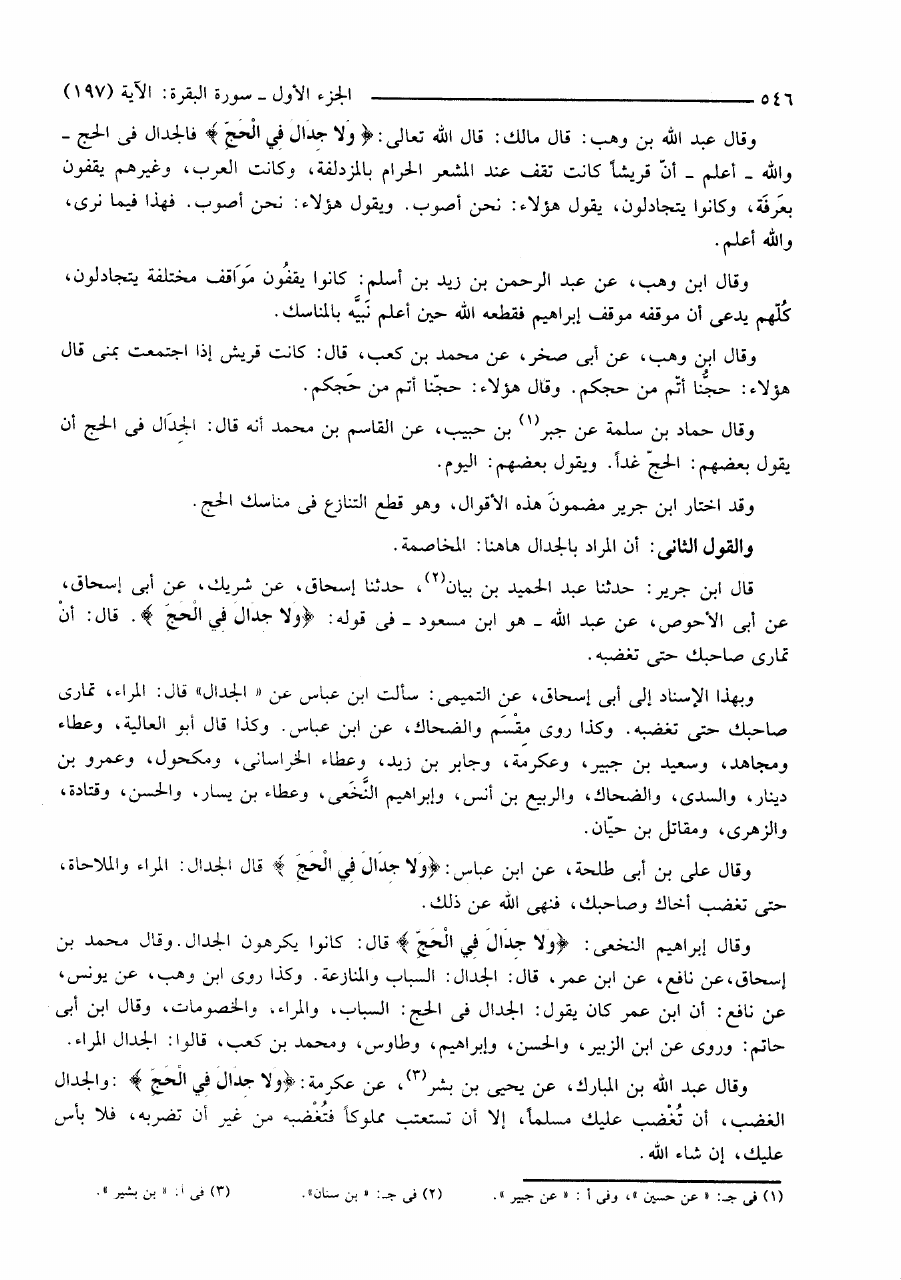 ٥٤٦ ــــــــــــــ الجزء الأول ـ سورة البقرة: الآية (١٩٧)
وقال عبد الله بن وهب: قال مالك: قال الله تعالى: ﴿ وَلا جِدَالَ فِي الْحَجّ ﴾ فالجدال فى الحج ـ
والله ـ أعلم ـ أنّ قريشاً كانت تقف عند المشعر الحرام بالمزدلفة، وكانت العرب، وغيرهم يقفون
بعَرفَة، وكانوا يتجادلون، يقول هؤلاء: نحن أصوب. ويقول هؤلاء: نحن أصوب. فهذا فيما نرى،
والله أعلم.
وقال ابن وهب، عن عبد الرحمن بن زيد بن أسلم: كانوا يقفُون مَوَاقف مختلفة يتجادلون،
كُلّهم يدعى أن موقفه موقف إبراهيم فقطعه الله حين أعلم نَبيَّه بالمناسك.
وقال ابن وهب، عن أبى صخر، عن محمد بن كعب، قال: كانت قريش إذا اجتمعت بمنى قال
هؤلاء: حجُّنا أتّم من حجكم. وقال هؤلاء: حجّنا أتم من حَجكم.
وقال حماد بن سلمة عن جبر(١) بن حبيب، عن القاسم بن محمد أنه قال: الجِدَال فى الحج أن
يقول بعضهم: الحجّ غداً. ويقول بعضهم: اليوم.
وقد اختار ابن جرير مضمونَ هذه الأقوال، وهو قطع التنازع فى مناسك الحج.
والقول الثانى: أن المراد بالجدال هاهنا: المخاصمة.
قال ابن جرير: حدثنا عبد الحميد بن بيان(٢)، حدثنا إسحاق، عن شريك، عن أبى إسحاق،
عن أبى الأحوص، عن عبد الله ـ هو ابن مسعود ـ فى قوله: ﴿وَلا جِدَالَ فِي الْحَجِّ ﴾. قال: أنْ
تمارى صاحبك حتى تغضبه.
وبهذا الإسناد إلى أبى إسحاق، عن التميمى: سألت ابن عباس عن « الجدال» قال: المراء، تمارى
صاحبك حتى تغضبه. وكذا روى مِقْسَم والضحاك، عن ابن عباس. وكذا قال أبو العالية، وعطاء
ومجاهد، وسعيد بن جبير، وعكرمة، وجابر بن زيد، وعطاء الخراسانى، ومكحول، وعمرو بن
دينار، والسدى، والضحاك، والربيع بن أنس، وإبراهيم النَّخَعى، وعطاء بن يسار، والحسن، وقتادة،
والزهرى، ومقاتل بن حيّان.
وقال على بن أبى طلحة، عن ابن عباس: ﴿وَلا جِدَالَ فِي الْحَجِّ ﴾ قال الجدال: المراء والملاحاة،
حتى تغضب أخاك وصاحبك، فنهى الله عن ذلك.
وقال إبراهيم النخعى: ﴿وَلا جِدَالَ فِي الْحَجّ ﴾ قال: كانوا يكرهون الجدال.وقال محمد بن
إسحاق،عن نافع، عن ابن عمر، قال: الجدال: السباب والمنازعة. وكذا روى ابن وهب، عن يونس،
عن نافع: أن ابن عمر كان يقول: الجدال فى الحج: السباب، والمراء، والخصومات، وقال ابن أبى
حاتم: وروى عن ابن الزبير، والحسن، وإبراهيم، وطاوس، ومحمد بن كعب، قالوا: الجدال المراء.
وقال عبد الله بن المبارك، عن يحيى بن بشر(٣)، عن عكرمة: ﴿وَلا جِدَالَ فِي الْحَجِّ ﴾ :والجدال
الغضب، أن تُغْضب عليك مسلماً، إلا أن تستعتب مملوكاً فتُغْضبه من غير أن تضربه، فلا بأس
عليك، إن شاء الله.
(١) فى جـ: « عن حسين »، وفى أ : « عن جبير ». (٢) فى جـ: « بن سنان». (٣) فى أ: « بن بشير ».